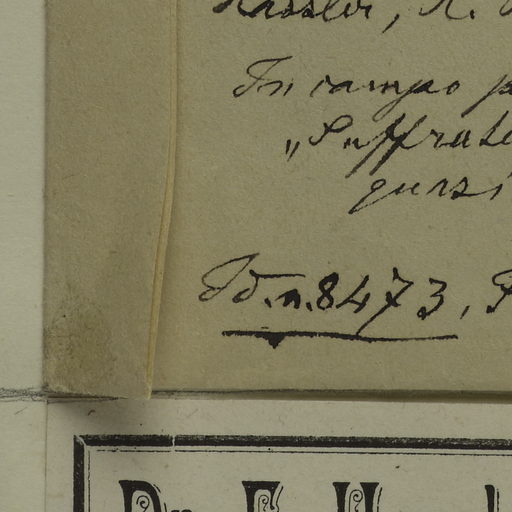 Hassler, K.
In campo p
„Suffrute
quasi
Id. n. 8473, P
Dr. E. H